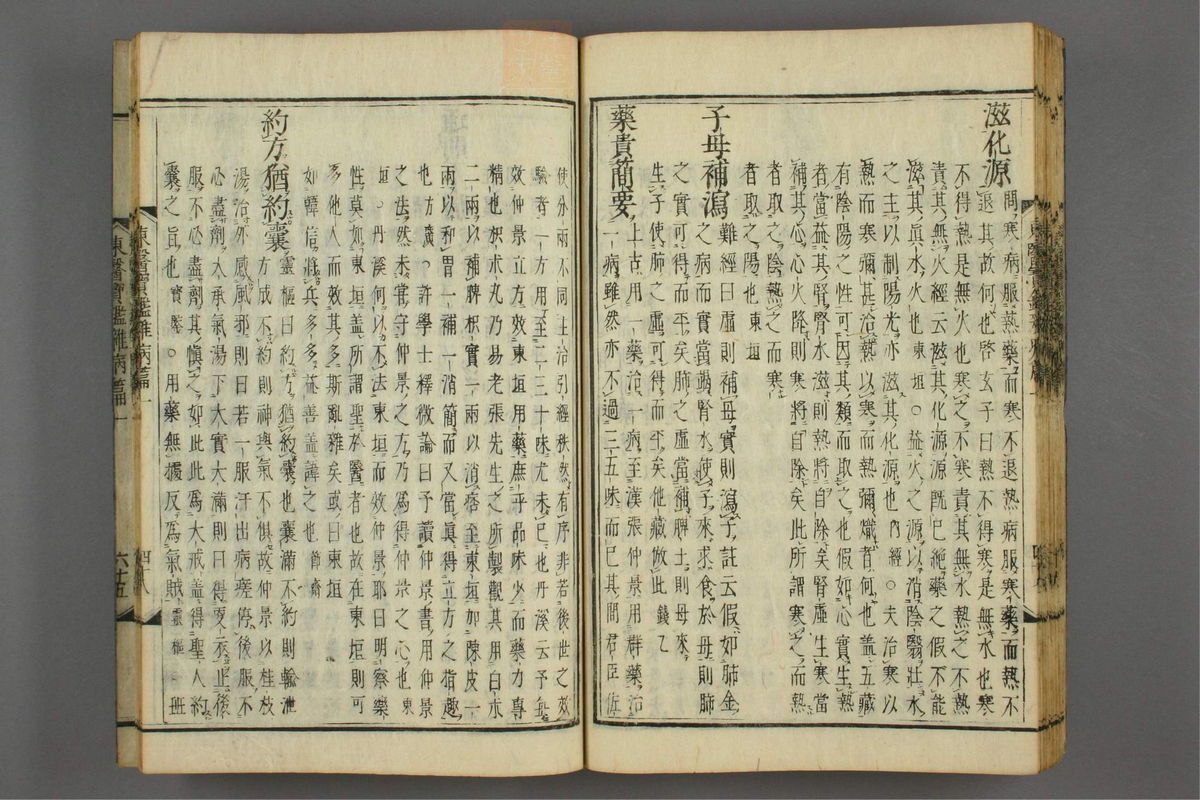 滋化源
問寒病服熱藥而寒不退熱病服寒藥而熱不
退其故何也啓玄子曰熱不得寒是無水也寒
不得熱是無火也寒之不寒責其無水熱之不熱
責其無火經云滋其化源源旣已絶藥之假不能
滋其眞水火也東垣○益火之源以消陰翳壯水
之主以制陽光亦滋其化源也內經○夫治寒以
熱而寒彌甚治熱以寒而熱彌熾者何也盖五藏
有陰陽之性可因其類而取之也假如心實生熱
者當益其腎腎水滋則熱將自除矣腎虛生寒當
補其心心火降則寒將自除矣此所謂寒之而熱
者取之陰熱之而寒
者取之陽也東垣
子母補瀉
難經曰虛則補母實則瀉子註云假如肺金
之病而實當瀉腎水使子來求食於母則肺
之實可得而平矣肺之虛當補脾土則母來
生子使肺之虛可得而平矣他藏倣此錢乙
藥貴簡要
上古用一藥治一病至漢張仲景用群藥治
一病雖然亦不過三五味而已其間君臣佐
使分兩不同主治引經秩然有序非若後世之效
驗者一方用至二三十味尤未已也丹溪云予每
效仲景立方效東垣用藥庶乎品味少而藥力專
精也枳朮丸乃易老張先生之所製觀其用白朮
二兩以補脾枳實一兩以消痞至東垣加陳皮一
兩以和胃一補一消簡而又當眞得立方之指趣
也方廣○許學士釋微論曰予讀仲景書用仲景
之法然未嘗守仲景之方乃為得仲景之心也東
垣○丹溪何以不法東垣而效仲景耶曰明察藥
性莫如東垣盖所謂聖於醫者也故在東垣則可
多他人而效其多斯亂雜矣或曰東垣
如韓信將兵多多益善盖諱之也節齋
約方猶約囊
靈樞曰約方猶約囊也囊滿不約則輸泄
方成不約則神與氣不俱故仲景以桂枝
湯治外感風邪則曰若一服汗出病瘥停後服不
必盡劑大承氣湯下大實大滿則曰得更衣止後
服不必盡劑其愼之如此此為大戒盖得聖人約
囊之旨也寶鑑○用藥無據反為氣賊靈樞○班
東醫寶鑑雜病篇一
四十八
六十五